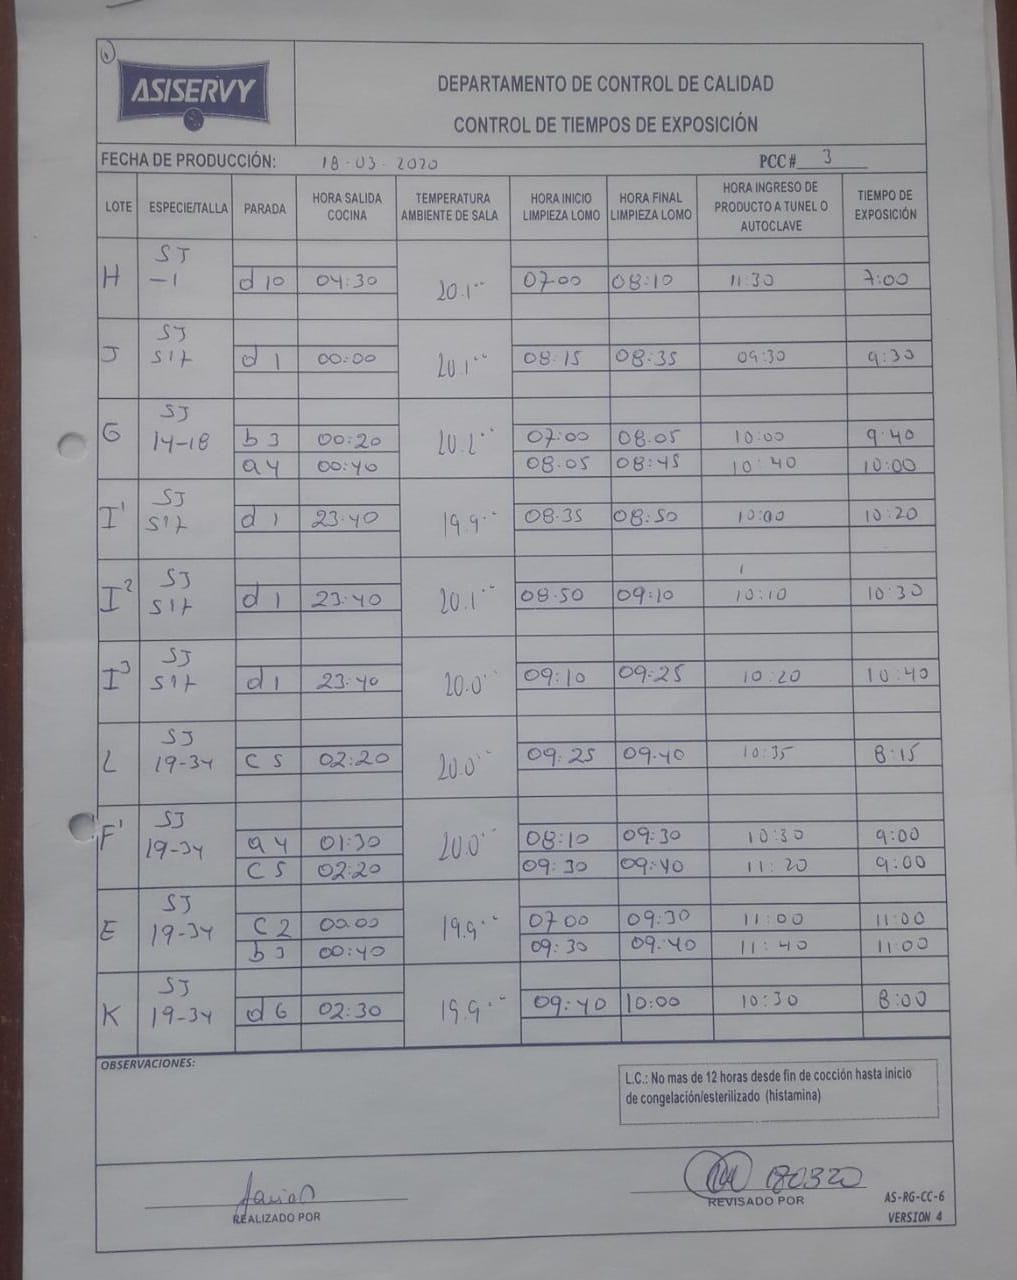 1
ASISERVY
DEPARTAMENTO DE CONTROL DE CALIDAD
CONTROL DE TIEMPOS DE EXPOSICIÓN
FECHA DE PRODUCCIÓN: 18-03-2020 PCC# 3
LOTE ESPECIE/TALLA PARADA HORA SALIDA COCINA TEMPERATURA AMBIENTE DE SALA HORA INICIO LIMPIEZA LOMO HORA FINAL LIMPIEZA LOMO HORA INGRESO DE PRODUCTO A TUNEL O AUTOCLAVE TIEMPO DE EXPOSICIÓN
H SJ -1 d10 04:30 20.1 07:00 08:10 11:30 7:00
J SJ S17 d1 00:00 20.1 08:15 08:35 09:30 9:30
G SJ 14-18 b3 00:20 20.2 07:00 08:05 10:00 9:40
a4 00:40 08:05 08:45 10:40 10:00
I1 SJ S17 d1 23:40 19.9 08:35 08:50 10:00 10:20
I2 SJ S17 d1 23:40 20.1 08:50 09:10 10:10 10:30
I3 SJ S17 d1 23:40 20.0 09:10 09:25 10:20 10:40
L SJ 19-34 C5 02:20 20.0 09:25 09:40 10:35 8:15
F1 SJ 19-34 a4 01:30 20.0 08:10 09:30 10:30 9:00
C5 02:20 09:30 09:40 11:20 9:00
E SJ 19-34 C2 00:00 19.9 07:00 09:30 11:00 11:00
b3 00:40 09:30 09:40 11:40 11:00
K SJ 19-34 d6 02:30 19.9 09:40 10:00 10:30 8:00
OBSERVACIONES:
L.C.: No mas de 12 horas desde fin de cocción hasta inicio
de congelación/esterilizado (histamina)
180320
REALIZADO POR
REVISADO POR
AS-RG-CC-6
VERSION 4